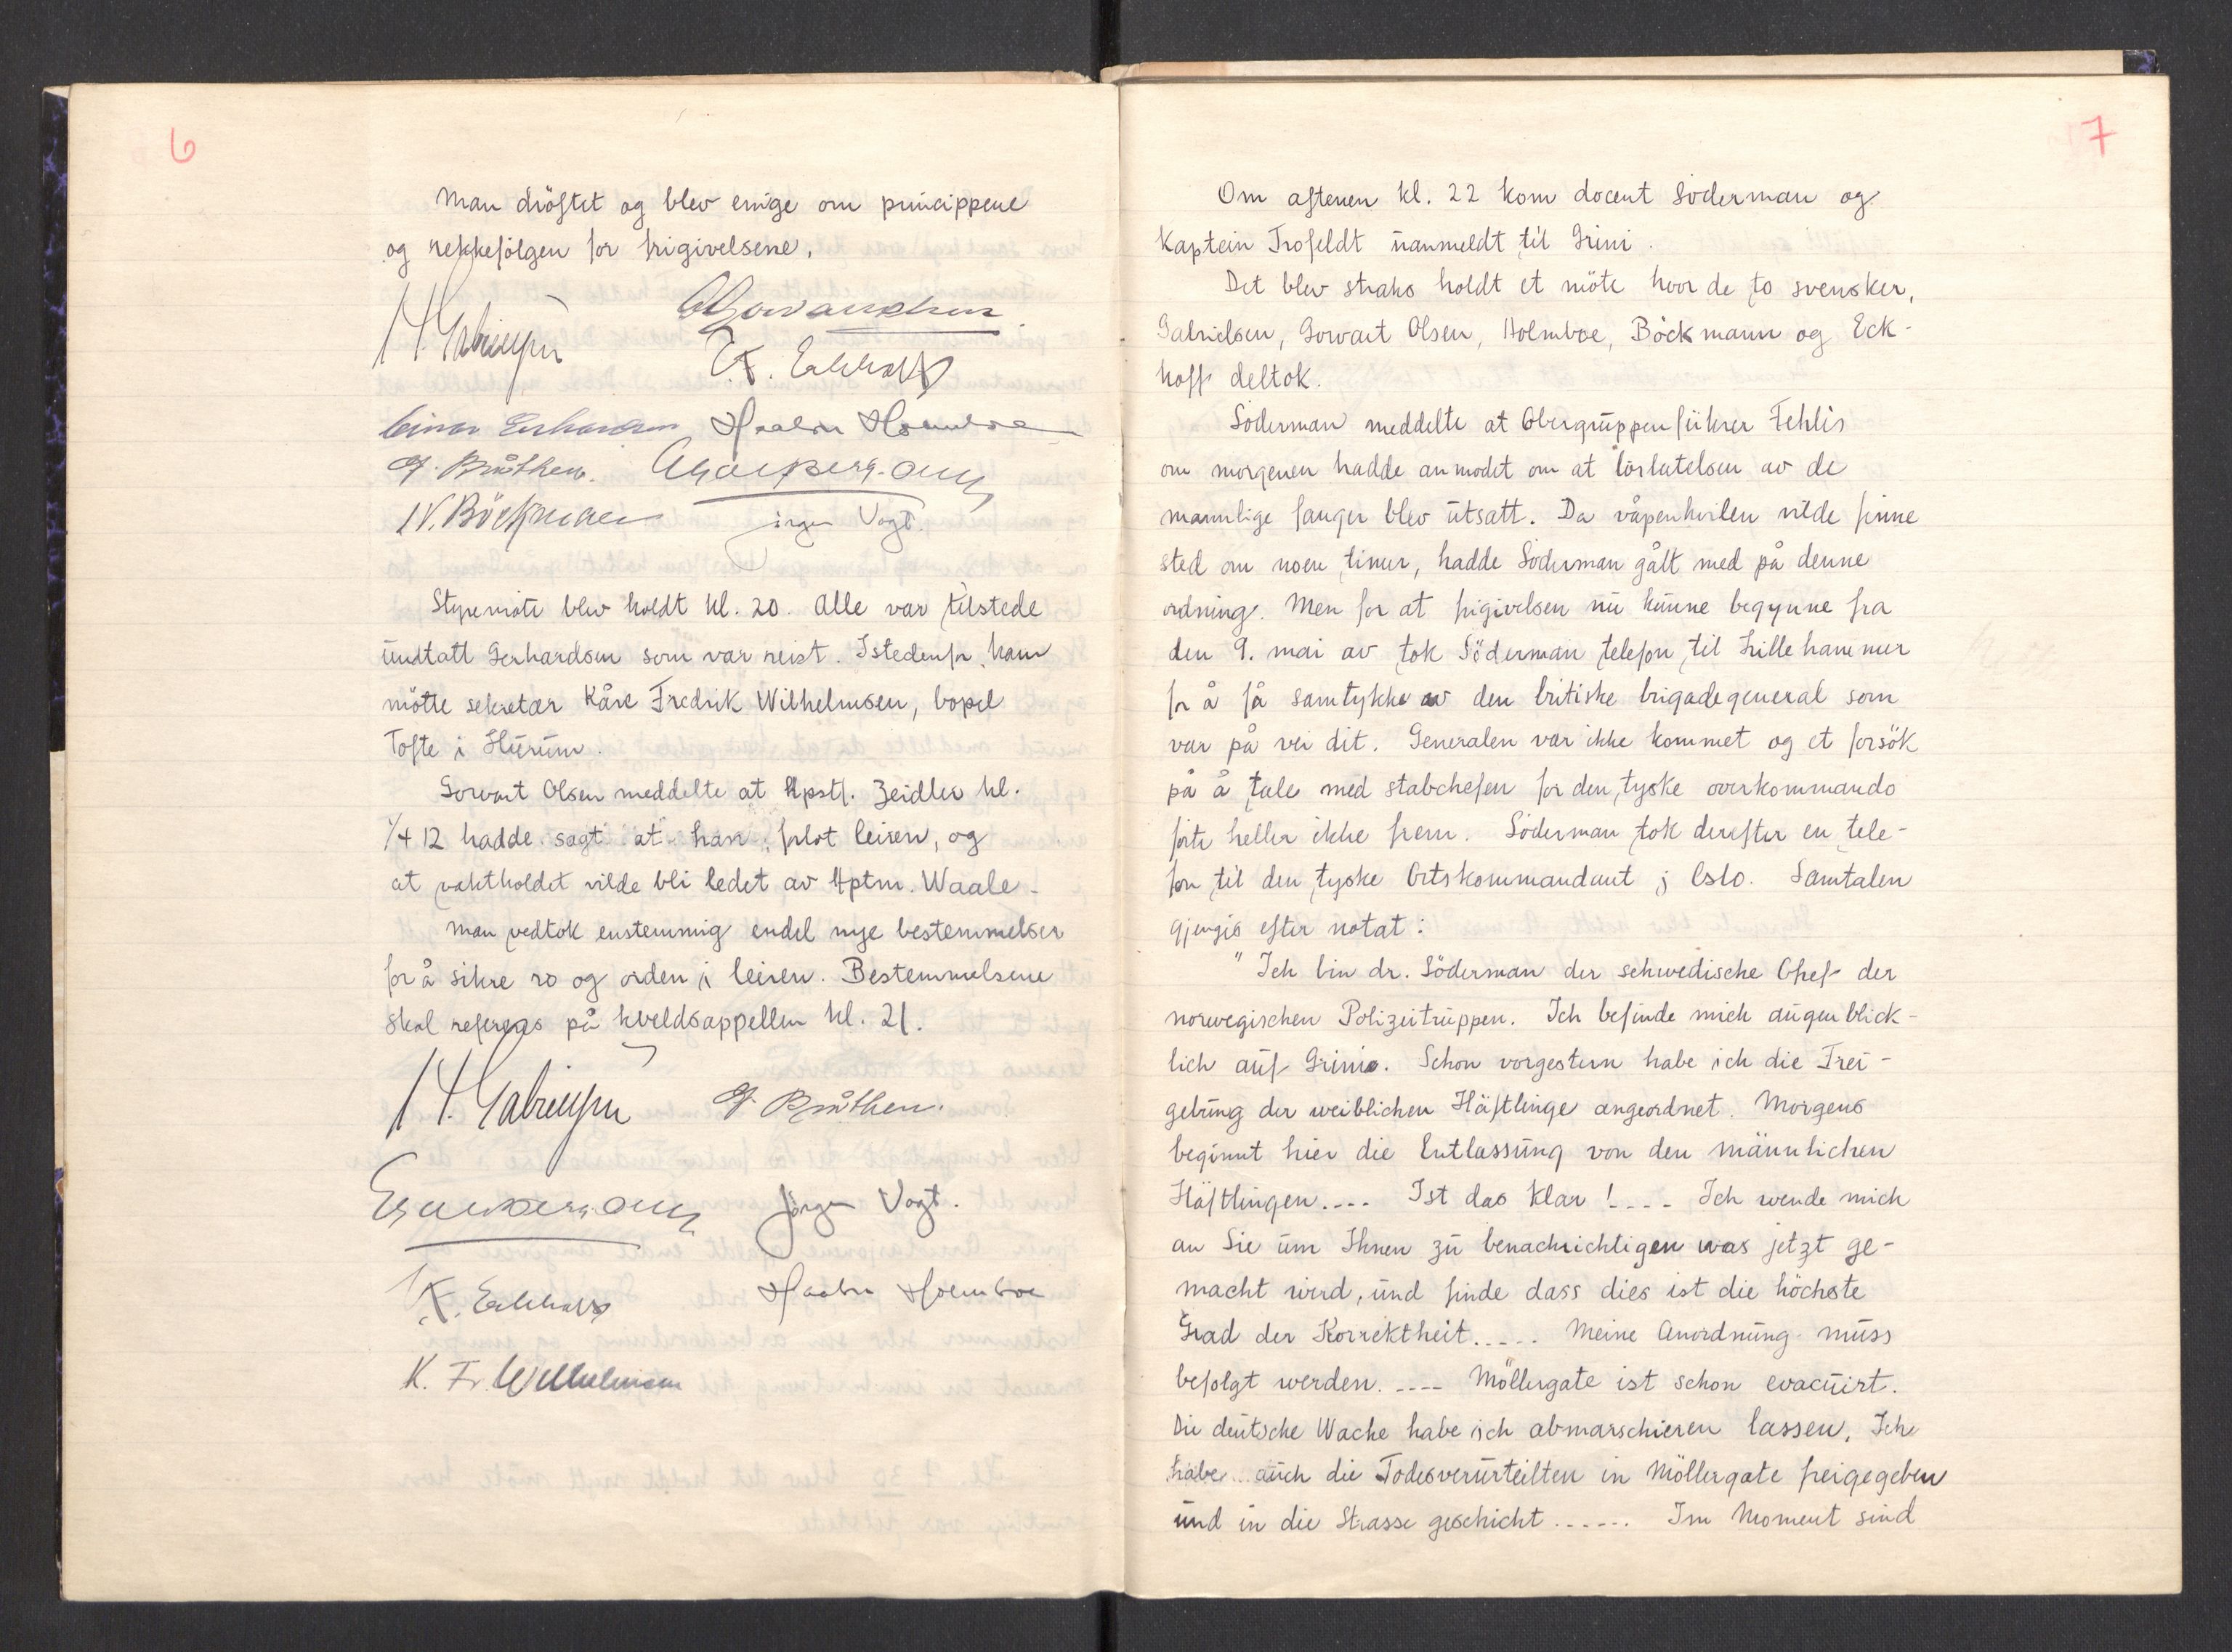 6
Man dröftet og blev enige om princippene
og rekkefölgen for frigivelsene.
H. Gabrielsen
K. Eckhoff
Einar Gerhardsen Haakon Holmboe
G. Bråthen.
N. Böckman
Jörgen Vogt.
Styremöte blev holdt kl. 20. Alle var tilstede
undtatt Gerhardsen som var reist. Istedenfor ham
mötte sekretær Kåre Fredrik Wilhelmsen, bopel
Tofte i Hurum.
Gowart Olsen meddelte at Hpstf. Zeidler kl.
1/4 12 hadde sagt at han forlot leiren, og
at vaktholdet vilde bli ledet av Hptm. Waale.
Man vedtok enstemmig endel nye bestemmelser
for å sikre ro og orden i leiren. Bestemmelsene
skal refereres på kveldsappellen kl. 21.
H. Gabrielsen G. Bråthen.
Jörgen Vogt.
K. Eckhoff Haakon Holmboe
K. Fr. Wilhelmsen
7
Om aftenen kl. 22 kom docent Söderman og
kaptein Trofeldt uanmeldt til Grini.
Det blev straks holdt et möte hvor de to svensker,
Gabrielsen, Gowart Olsen, Holmboe, Böckmann og Eck-
hoff deltok.
Söderman meddelte at Obergruppenführer Fehlis
om morgenen hadde anmodet om at löslatelsen av de
mannlige fanger blev utsatt. Da våpenhvilen vilde finne
sted om noen timer, hadde Söderman gått med på denne
ordning. Men for at frigivelsen nu kunne begynne fra
den 9. mai av tok Söderman telefon til Lillehammer
for å få samtykke av den britiske brigadegeneral som
var på vei dit. Generalen var ikke kommet og et forsök
på å tale med stabchefen for den tyske overkommando
förte heller ikke frem. Söderman tok derefter en tele-
fon til den tyske Ortskommandant i Oslo. Samtalen
gjengis efter notat:
"Ich bin dr. Söderman der schwedische Chef der
norwegischen Polizeitruppen. Ich befinde mich augenblick-
lich auf Grini. Schon vorgestern habe ich die Frei-
gebung der weiblichen Häftlinge angeordnet. Morgens
beginnt hier die Entlassung von den männlichen
Häftlingen.... Ist das klar!.... Ich wende mich
an Sie um Ihnen zu benachrichtigen was jetzt ge-
macht wird, und finde dass dies ist die höchste
Grad der Korrektheit..... Meine Anordnung muss
befolgt werden..... Möllergate ist schon evacuirt.
Die deutsche Wache habe ich abmarschieren lassen. Ich
habe auch die Todesverurteilten in Möllergate freigegeben
und in die Strasse geschicht...... Im Moment sind